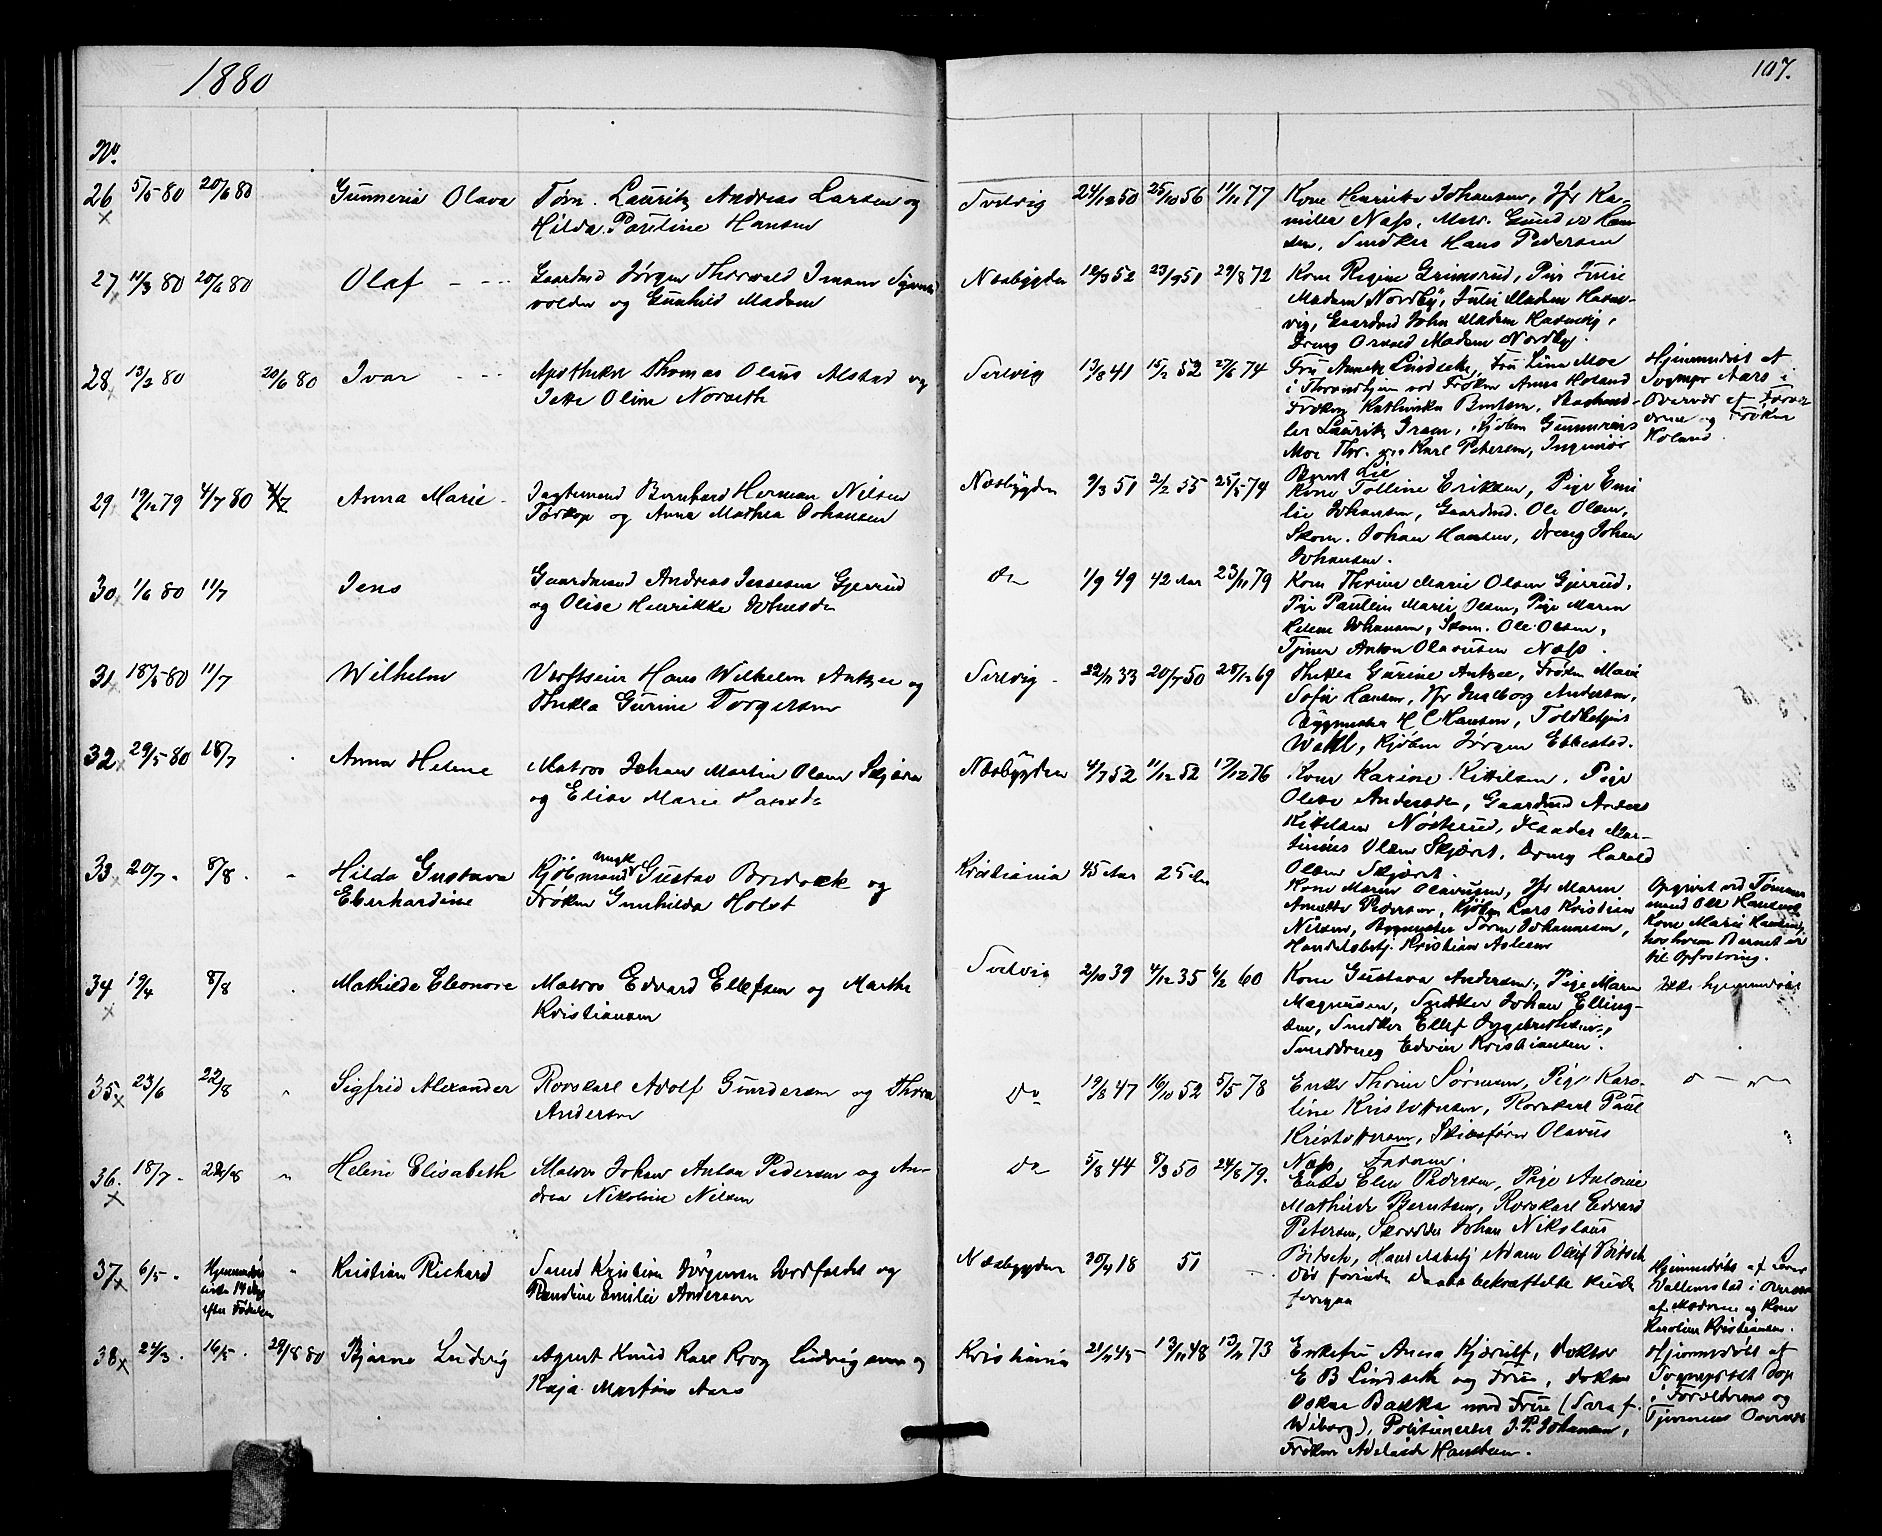 1880
107.
No.
26 5/5 80 20/6 80 Gunneria Olava Tøm. Lauritz Andreas Larsen og
Hilda Pauline Hansen
Svelvig 24/12 50 25/10 56 11/11 77 Kone Henrikke Johansen, Jfr Ka-
milla Næss, Matr. Gunder Han-
sen, Snedker Hans Pedersen
27 11/3 80 20/6 80 Olaf Gaardmd Jørgen Thorvald
volden og Gunhild Madsen
Næsbygden 12/3 52 23/9 51 29/8 72 Kone Regine Grimsrud, Pige
Madsen Nordby, Julie Madsen Havne-
vig, Gaardmd John Madsen Havnevig,
Dreng Osvald Madsen Nordby.
28 13/2 80 20/6 80 Ivar Apotheker Thomas Olaus Alstad og
Jette Oline Norseth
Svelvig 13/8 41 15/2 52 27/6 74 Fru Annette Lindseth, Fru Lina Moe
i Throndhjem ved Frøken Anna Holand
Frøken Kathinka Berntsen,
ler Lauritz Iversen, Kjøbm Gunnerius
Moe Thr. Karl Petersen, Ingeniør
Bernt Lie
Hjemmedøbt af
Sognepr Aars i
Overvær af Foræl
drene og Frøken
Holand.
29 19/12 79 4/7 80 4/7 Anna Marie Jagtemand Bernhard Herman Nilsen
Tørkop og Anna Mathea Johansen
Næsbygden 9/3 51 2/2 55 25/5 74 Kone Tolline Eriksen, Pige Emi
lie Johansen, Gaardmd. Ole Olsen,
Skom. Johan Hansen, Dreng Johan
Johansen.
30 1/6 80 11/7 Jens Gaardmand Andreas Jensen Gjerrud
og Olise Henrikke Johnsdr
Do 1/9 49 42 Aar 23/11 79 Kone Thrine Marie Olsen Gjerrud,
Pige Pauline Marie Olsen, Pige Maren
Helene Johansen, Skom. Ole Olsen,
Tjener Anton Olavesen Næss.
31 18/5 80 11/7 Wilhelm Verftseier Hans Wilhelm Antzee og
Thekla Gurine Torgersen
Svelvig 22/11 33 20/7 50 28/12 69 Thekla Gurine Antzee, Frøken Marie
Sofie Hansen, Jfr Ingeborg Andersen,
Bygmester H C Hansen, Toldbetjent
Wahl, Kjøbm Jørgen Ebbestad.
32 29/5 80 18/7 Anna Helene Matros Johan Martin Olsen Skjøren
og Elise Marie Hansdr
Næsbygden 4/7 52 11/12 52 17/12 76 Kone Karine Kittilsen, Pige
Olette Andersdr, Gaardmd Anders
Kittilsen Nøstrud, Mar-
tinius Olsen Skjøret, Dreng Harald
Olsen Skjøret.
33 20/7 8/8 Hilda Gustava
Eberhardine
Kjøbmand ungk Gustav Bredvek og
Frøken Gunhilda Holst
Kristiania 45 Aar 25 Aar Kone Maren Olavesen, Jfr Maren
Annette Pedersen, Kjøbm Lars Kristian
Nilsen, Bygmester Sören Johannesen,
Handelsbetj. Kristian Aslesen
Opgivet ved Tømmer
mand Ole Hansens
Kone Marie Hansen,
hos hvem Barnet er
til Opfostring.
34 19/4 8/8 Mathilde Eleonore Matros Edvard Ellefsen og Marthe
Kristiansen
Svelvig 2/10 39 4/12 35 6/2 60 Kone Gustava Andersen, Pige Maren
Magnusen, Snedker Johan Elling-
sen, Snedker Ellef Ingebrethsen,
Snedkerdreng Edvin Kristiansen.
Ikke hjemmedøbt
35 23/6 22/8 Sigfrid Alexander Rorskarl Adolf Gundersen og Thora
Andersen
Do 19/8 47 16/10 52 5/5 78 Enke Thrine Sørensen, Pige Karo-
line Kristoffersen, Rorskarl Paul
Kristoffersen, Skibsfører Olavus
Næss, Faderen.
36. 18/7 22/8 Helene Elisabeth Matros Johan Anton Pedersen og An-
drea Nikoline Nilsen
Do 5/8 44 8/3 50 24/8 79. Enke Elen Pedersen, Pige Antonie
Mathilde Berntsen, Rorskarl Edvard
Petersen, Skrædder Johan Nikolaus
Bitsch, Handelsbetj Adam Olluf Bitsch
37 6/5 Hjemmedøbt
cirka 14 Dage
efter Fødselen
Kristian Richard Smed Kristian Jörgensen og
Randine Emilie Andersen
Næsbygden 30/4 18 51 døde forinden Daabsbekræftelse kunde
foregaa
Hjemmedøbt af Lærer
Vallemstad i Overvær
af Moderen og Kone
Karoline Kristiansen.
38 22/3 16/5 29/8 80 Bjarne Ludvig Agent Knud Karl Krog Ludvigsen og
Kaja Martine Aars
Kristiania 21/11 45 13/11 48 13/11 73 Enkefru Anna Kjærulf, Doktor
E B Lindseth og Frue, Doktor
Oskar Bakke med Frue (Sara f.
Wiborg), Politimester J. P. Johansen,
Frøken Adelaide Hansteen.
Hjemmedøbt af
Sognepræst Dop
i Forældrenes og
Tjenernes Overvær